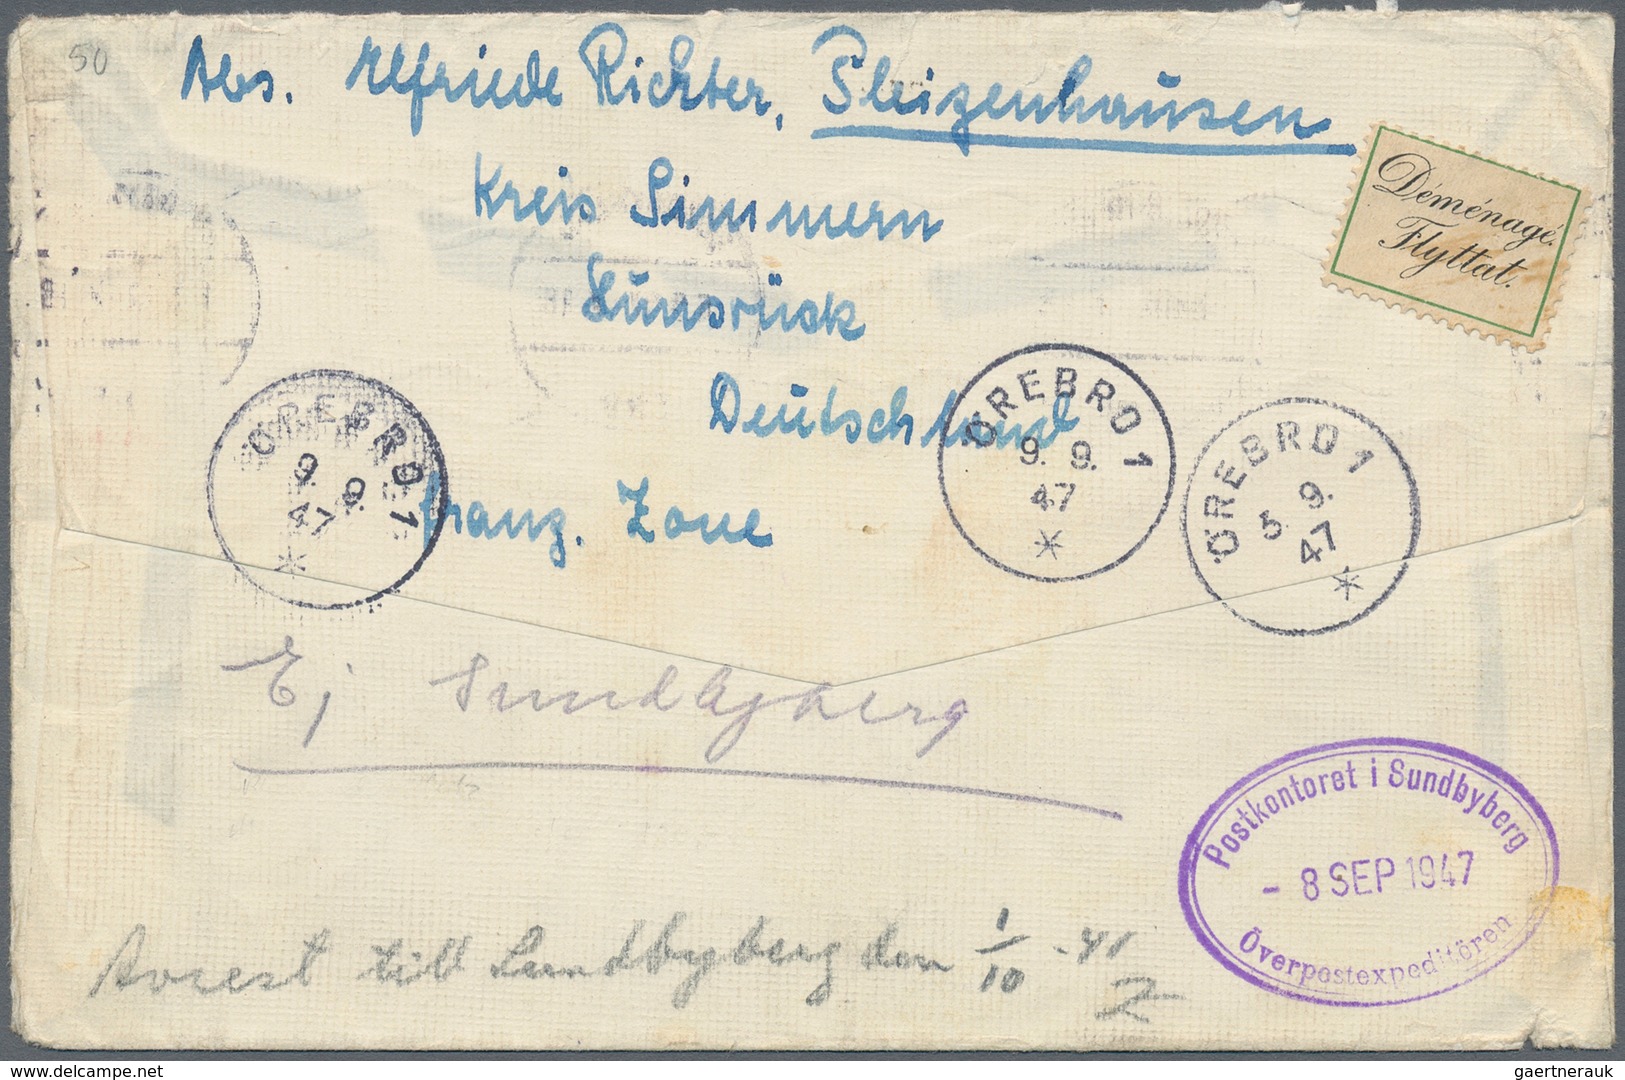 50
Abs. Elfriede Richter, Pleizenhausen
Kreis Simmern
Hunsrück
Deutschland
franz. Zone
Déménagé.
Flyttat.
ÖREBRO 1
9. 9.
47
ÖREBRO 1
9. 9.
47
ÖREBRO 1
5 9.
47
Ej Sundbyberg
Postkontoret i Sundbyberg
- 8 SEP 1947
Överpostexpeditören
Avrest till Sundbyberg den 1/10 -41
delcampe.net
gaertnerauk